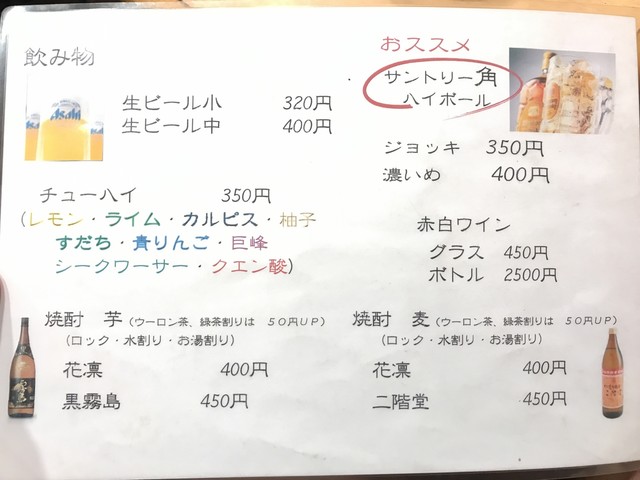 飲み物
生ビール小 320円
生ビール中 400円
Asahi
おススメ
サントリー角
ハイボール
ジョッキ 350円
濃いめ 400円
チューハイ 350円
(レモン・ライム・カルピス・柚子
すだち・青りんご・巨峰
シークワーサー・クエン酸)
赤白ワイン
グラス 450円
ボトル 2500円
焼酎 芋 (ウーロン茶、緑茶割りは 50円UP)
(ロック・水割り・お湯割り)
花凛 400円
黒霧島 450円
焼酎 麦 (ウーロン茶、緑茶割りは 50円UP)
(ロック・水割り・お湯割り)
花凛 400円
二階堂 450円